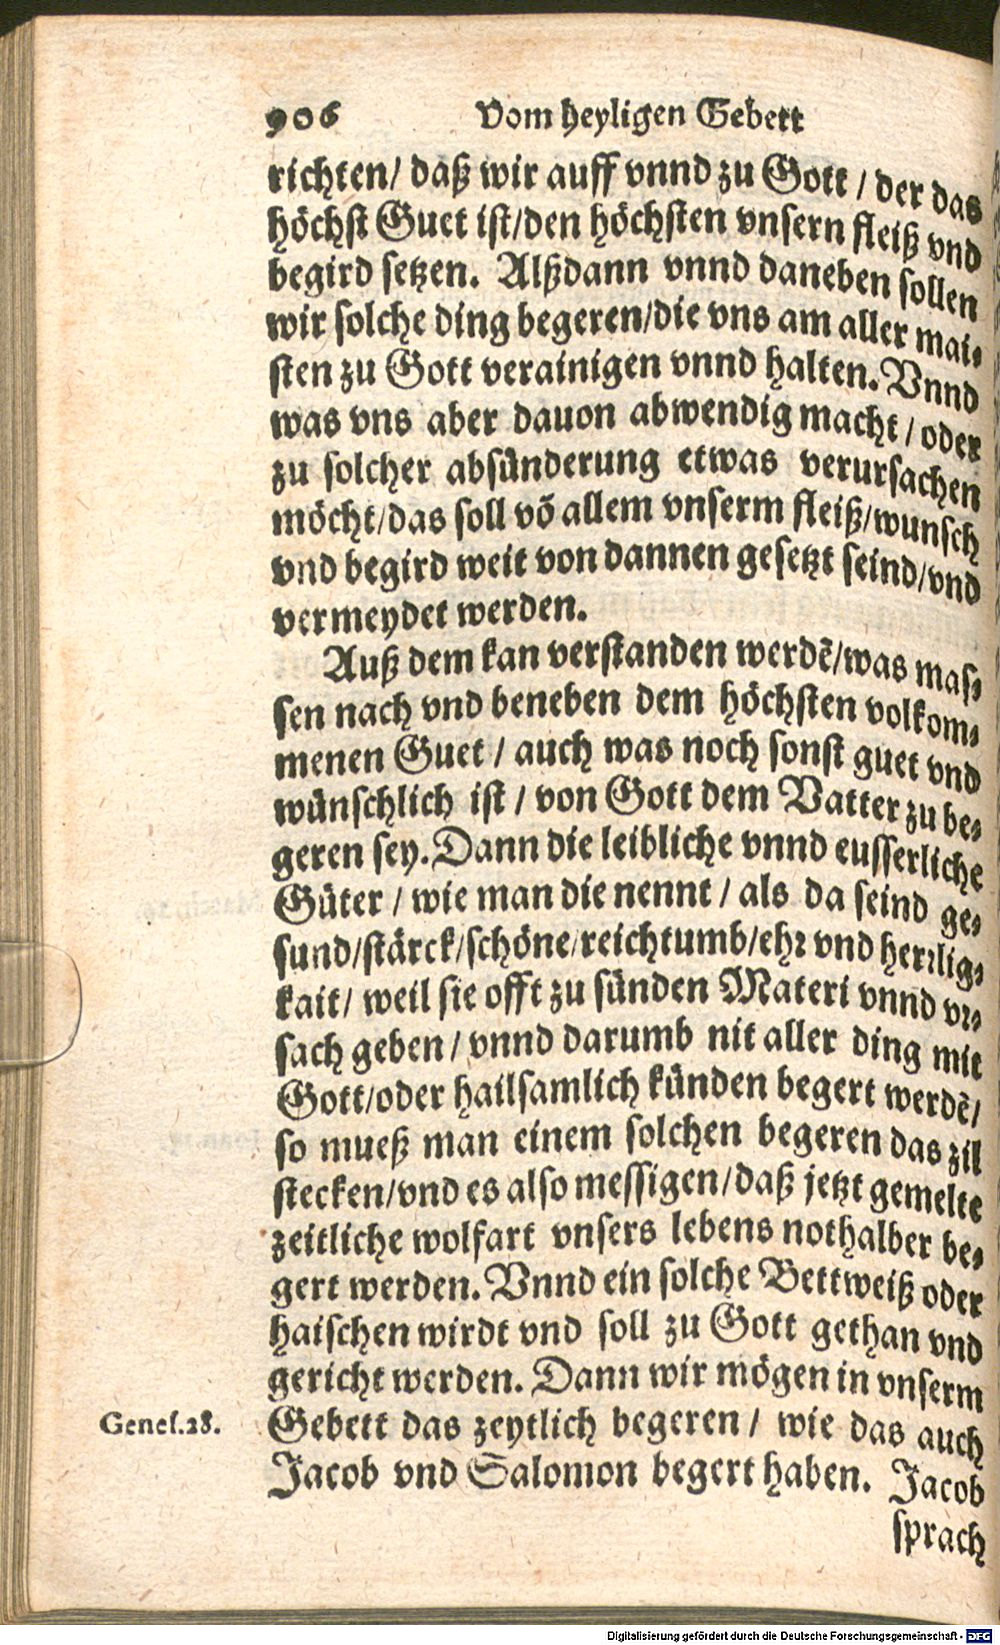 906 Vom heyligen Gebett
richten/ daß wir auff vnnd zu Gott / der das
höchst Guet ist/den höchsten vnsern fleiß vnd
begird setzen. Alßdann vnnd daneben sollen
wir solche ding begeren/die vns am aller mai-
sten zu Gott verainigen vnnd halten. Vnnd
was vns aber dauon abwendig macht / oder
zu solcher absünderung etwas verursachen
möcht/das soll võ allem vnserm fleiß/wunsch
vnd begird weit von dannen gesetzt seind/vnd
vermeydet werden.
Auß dem kan verstanden werdẽ/was mas-
sen nach vnd beneben dem höchsten volkom-
menen Guet / auch was noch sonst guet vnd
wünschlich ist / von Gott dem Vatter zu be-
geren sey. Dann die leibliche vnnd eusserliche
Güter / wie man die nennt / als da seind ge-
sund/stärck/schöne/reichtumb/ehr vnd herrlig-
kait/ weil sie offt zu sünden Materi vnnd vr-
sach geben / vnnd darumb nit aller ding mit
Gott/oder hailsamlich künden begert werdẽ/
so mueß man einem solchen begeren das zil
stecken/vnd es also messigen/daß jetzt gemelte
zeitliche wolfart vnsers lebens nothalber be-
gert werden. Vnnd ein solche Bettweiß oder
haischen wirdt vnd soll zu Gott gethan vnd
gericht werden. Dann wir mögen in vnserm
Genes.28. Gebett das zeytlich begeren / wie das auch
Jacob vnd Salomon begert haben. Jacob
sprach
Digitalisierung gefördert durch die Deutsche Forschungsgemeinschaft - DFG